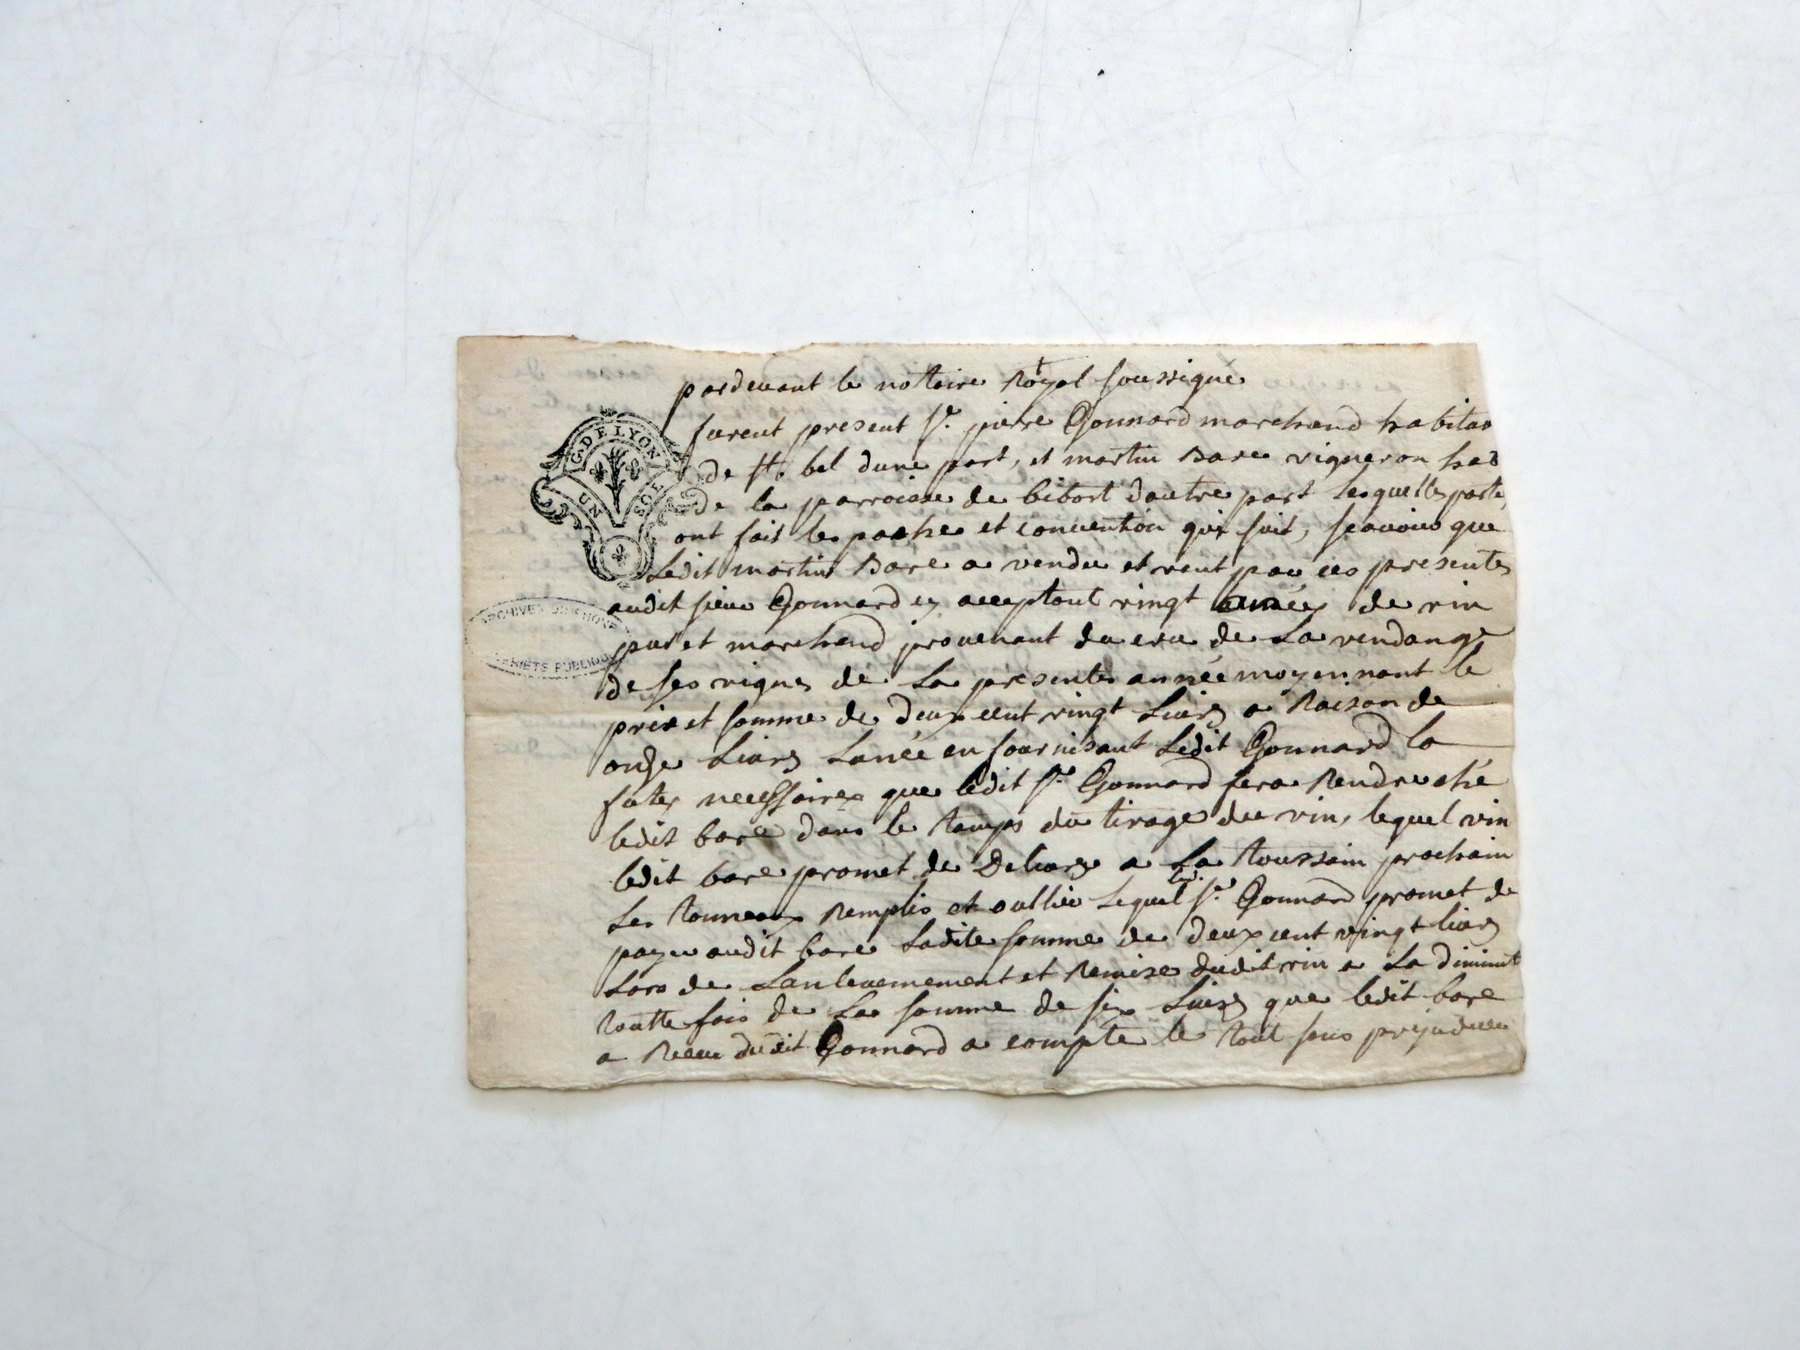 pardevant le nottaire Royal soussigné
furent present Sr. pierre Gonnard marchand habitan
de St. bel dune part, et martin Bare vigneron hab
de la parroisse de bibost dautre part Lesquelles partie
ont fait les pache et convention qui suit, scavoir que
Ledit martin Bare a vendu et vent par ces presentes
audit sieur Gonnard ey acceptant vingt anneés de vin
pur et marchand provenant du cru de La vendange
de ses vignes de La presentes année moyennant le
prix et somme de deux cent vingt Livres a Raison de
onze Livres Lanée en fournissant Ledit Gonnard la
futes necessaires que ledit Sr. Gonnard fera Rendre ché
ledit bare dans le temps du tirage du vin, lequel vin
ledit bare promet de Delivre a La Toussain prochain
Les Tonneaux Remplis et oullier Lequel Sr. Gonnard promet de
payer audit bare Ladite somme de deux cent vingt livres
Lors de Lanlevemement et Remise dudit vin a La diminut
Toutte fois de La somme de six Livres que ledit bare
a Receu dudit Gonnard a compte le Tout sous prejudice
G. DE LYON
UN SOL
ARCHIVES DU RHONE
PUBLIQUE